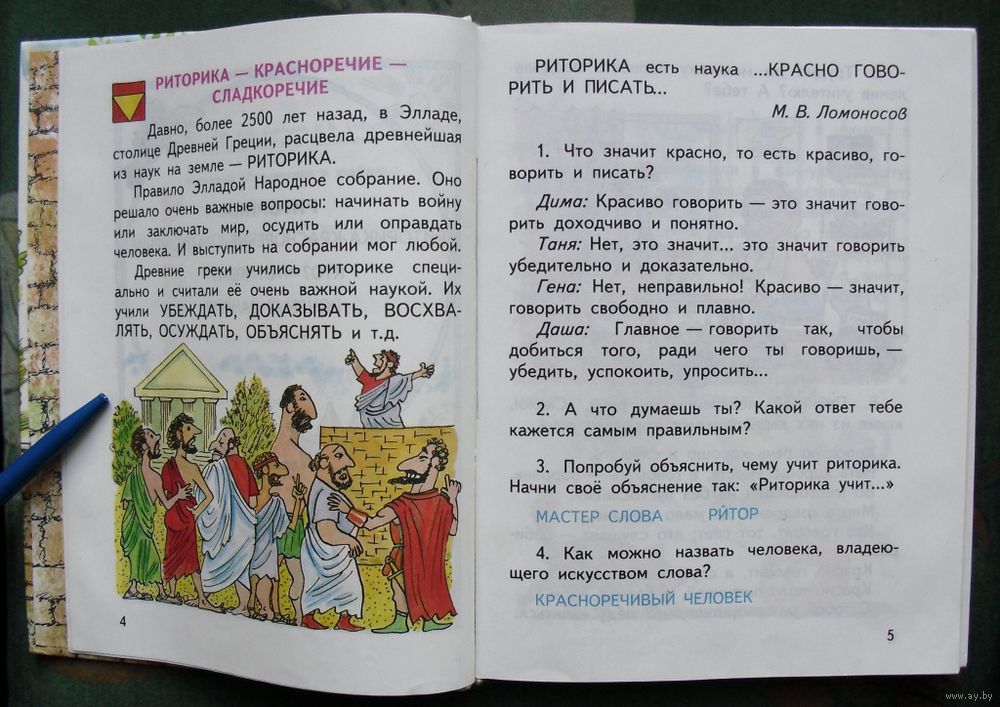 РИТОРИКА — КРАСНОРЕЧИЕ —
СЛАДКОРЕЧИЕ
Давно, более 2500 лет назад, в Элладе,
столице Древней Греции, расцвела древнейшая
из наук на земле — РИТОРИКА.
Правило Элладой Народное собрание. Оно
решало очень важные вопросы: начинать войну
или заключать мир, осудить или оправдать
человека. И выступить на собрании мог любой.
Древние греки учились риторике специ-
ально и считали её очень важной наукой. Их
учили УБЕЖДАТЬ, ДОКАЗЫВАТЬ, ВОСХВА-
ЛЯТЬ, ОСУЖДАТЬ, ОБЪЯСНЯТЬ и т.д.
4
РИТОРИКА есть наука ...КРАСНО ГОВО-
РИТЬ И ПИСАТЬ...
М. В. Ломоносов
1. Что значит красно, то есть красиво, го-
ворить и писать?
Дима: Красиво говорить — это значит гово-
рить доходчиво и понятно.
Таня: Нет, это значит... это значит говорить
убедительно и доказательно.
Гена: Нет, неправильно! Красиво — значит,
говорить свободно и плавно.
Даша: Главное — говорить так, чтобы
добиться того, ради чего ты говоришь, —
убедить, успокоить, упросить...
2. А что думаешь ты? Какой ответ тебе
кажется самым правильным?
3. Попробуй объяснить, чему учит риторика.
Начни своё объяснение так: «Риторика учит...»
МАСТЕР СЛОВА РИ́ТОР
4. Как можно назвать человека, владею-
щего искусством слова?
КРАСНОРЕЧИВЫЙ ЧЕЛОВЕК
5
www.ay.by